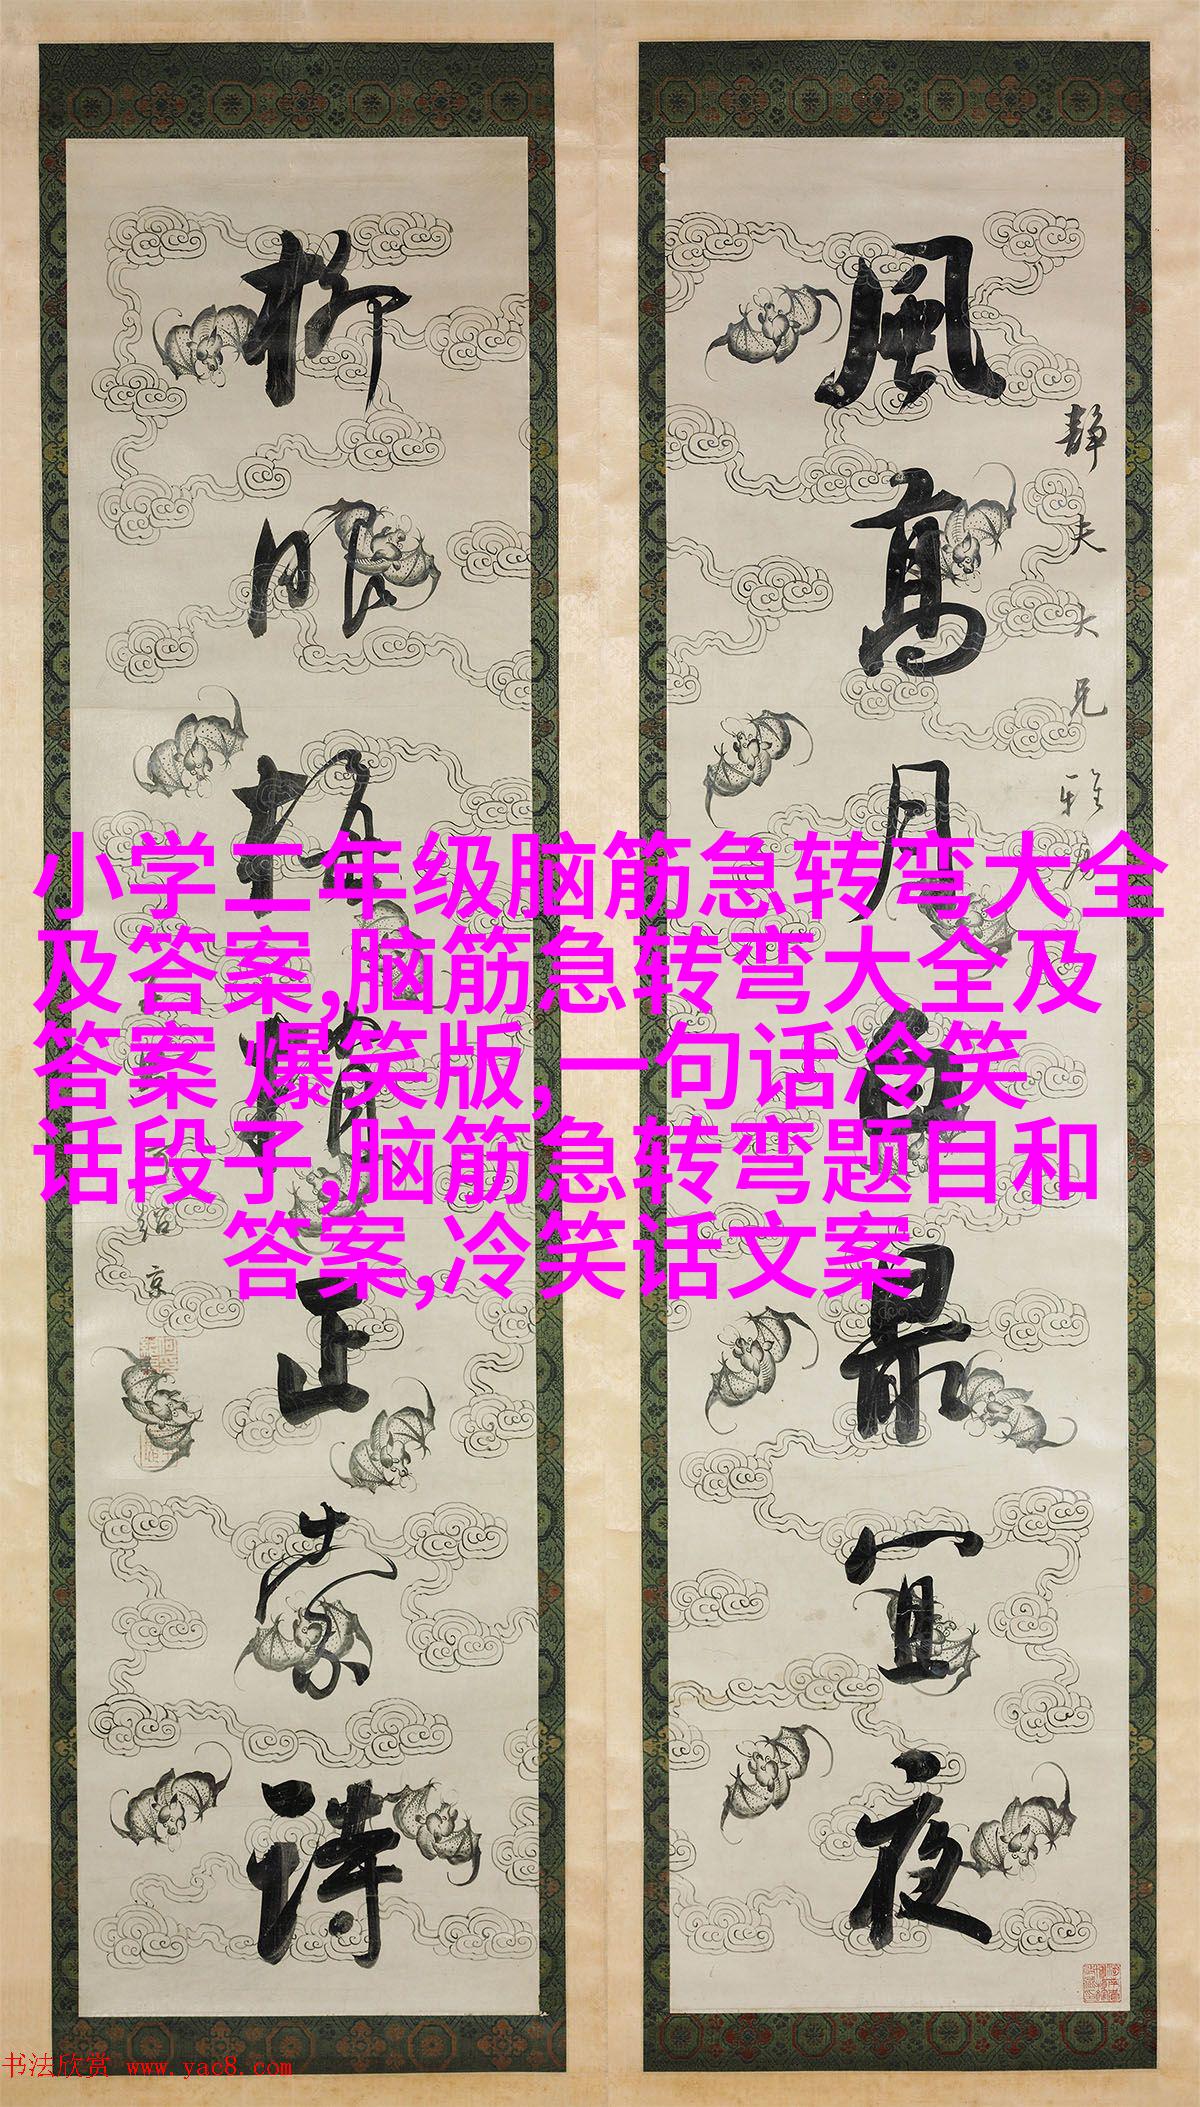 風高月白最宜夜
靜夫大兄雅
柳眼梅正索詩
紹京
小学二年级脑筋急转弯大全
及答案,脑筋急转弯大全及
答案 爆笑版,一句话冷笑
话段子,脑筋急转弯题目和
答案,冷笑话文案
书法欣赏 www.yac8.com